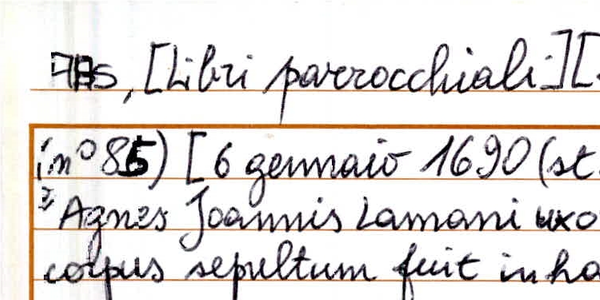 ABS, [Libri parrocchiali][
(n° 85) [6 gennaio 1690 (st.
Agnes Joannis Lamani uxo
corpus sepultum fuit in ha